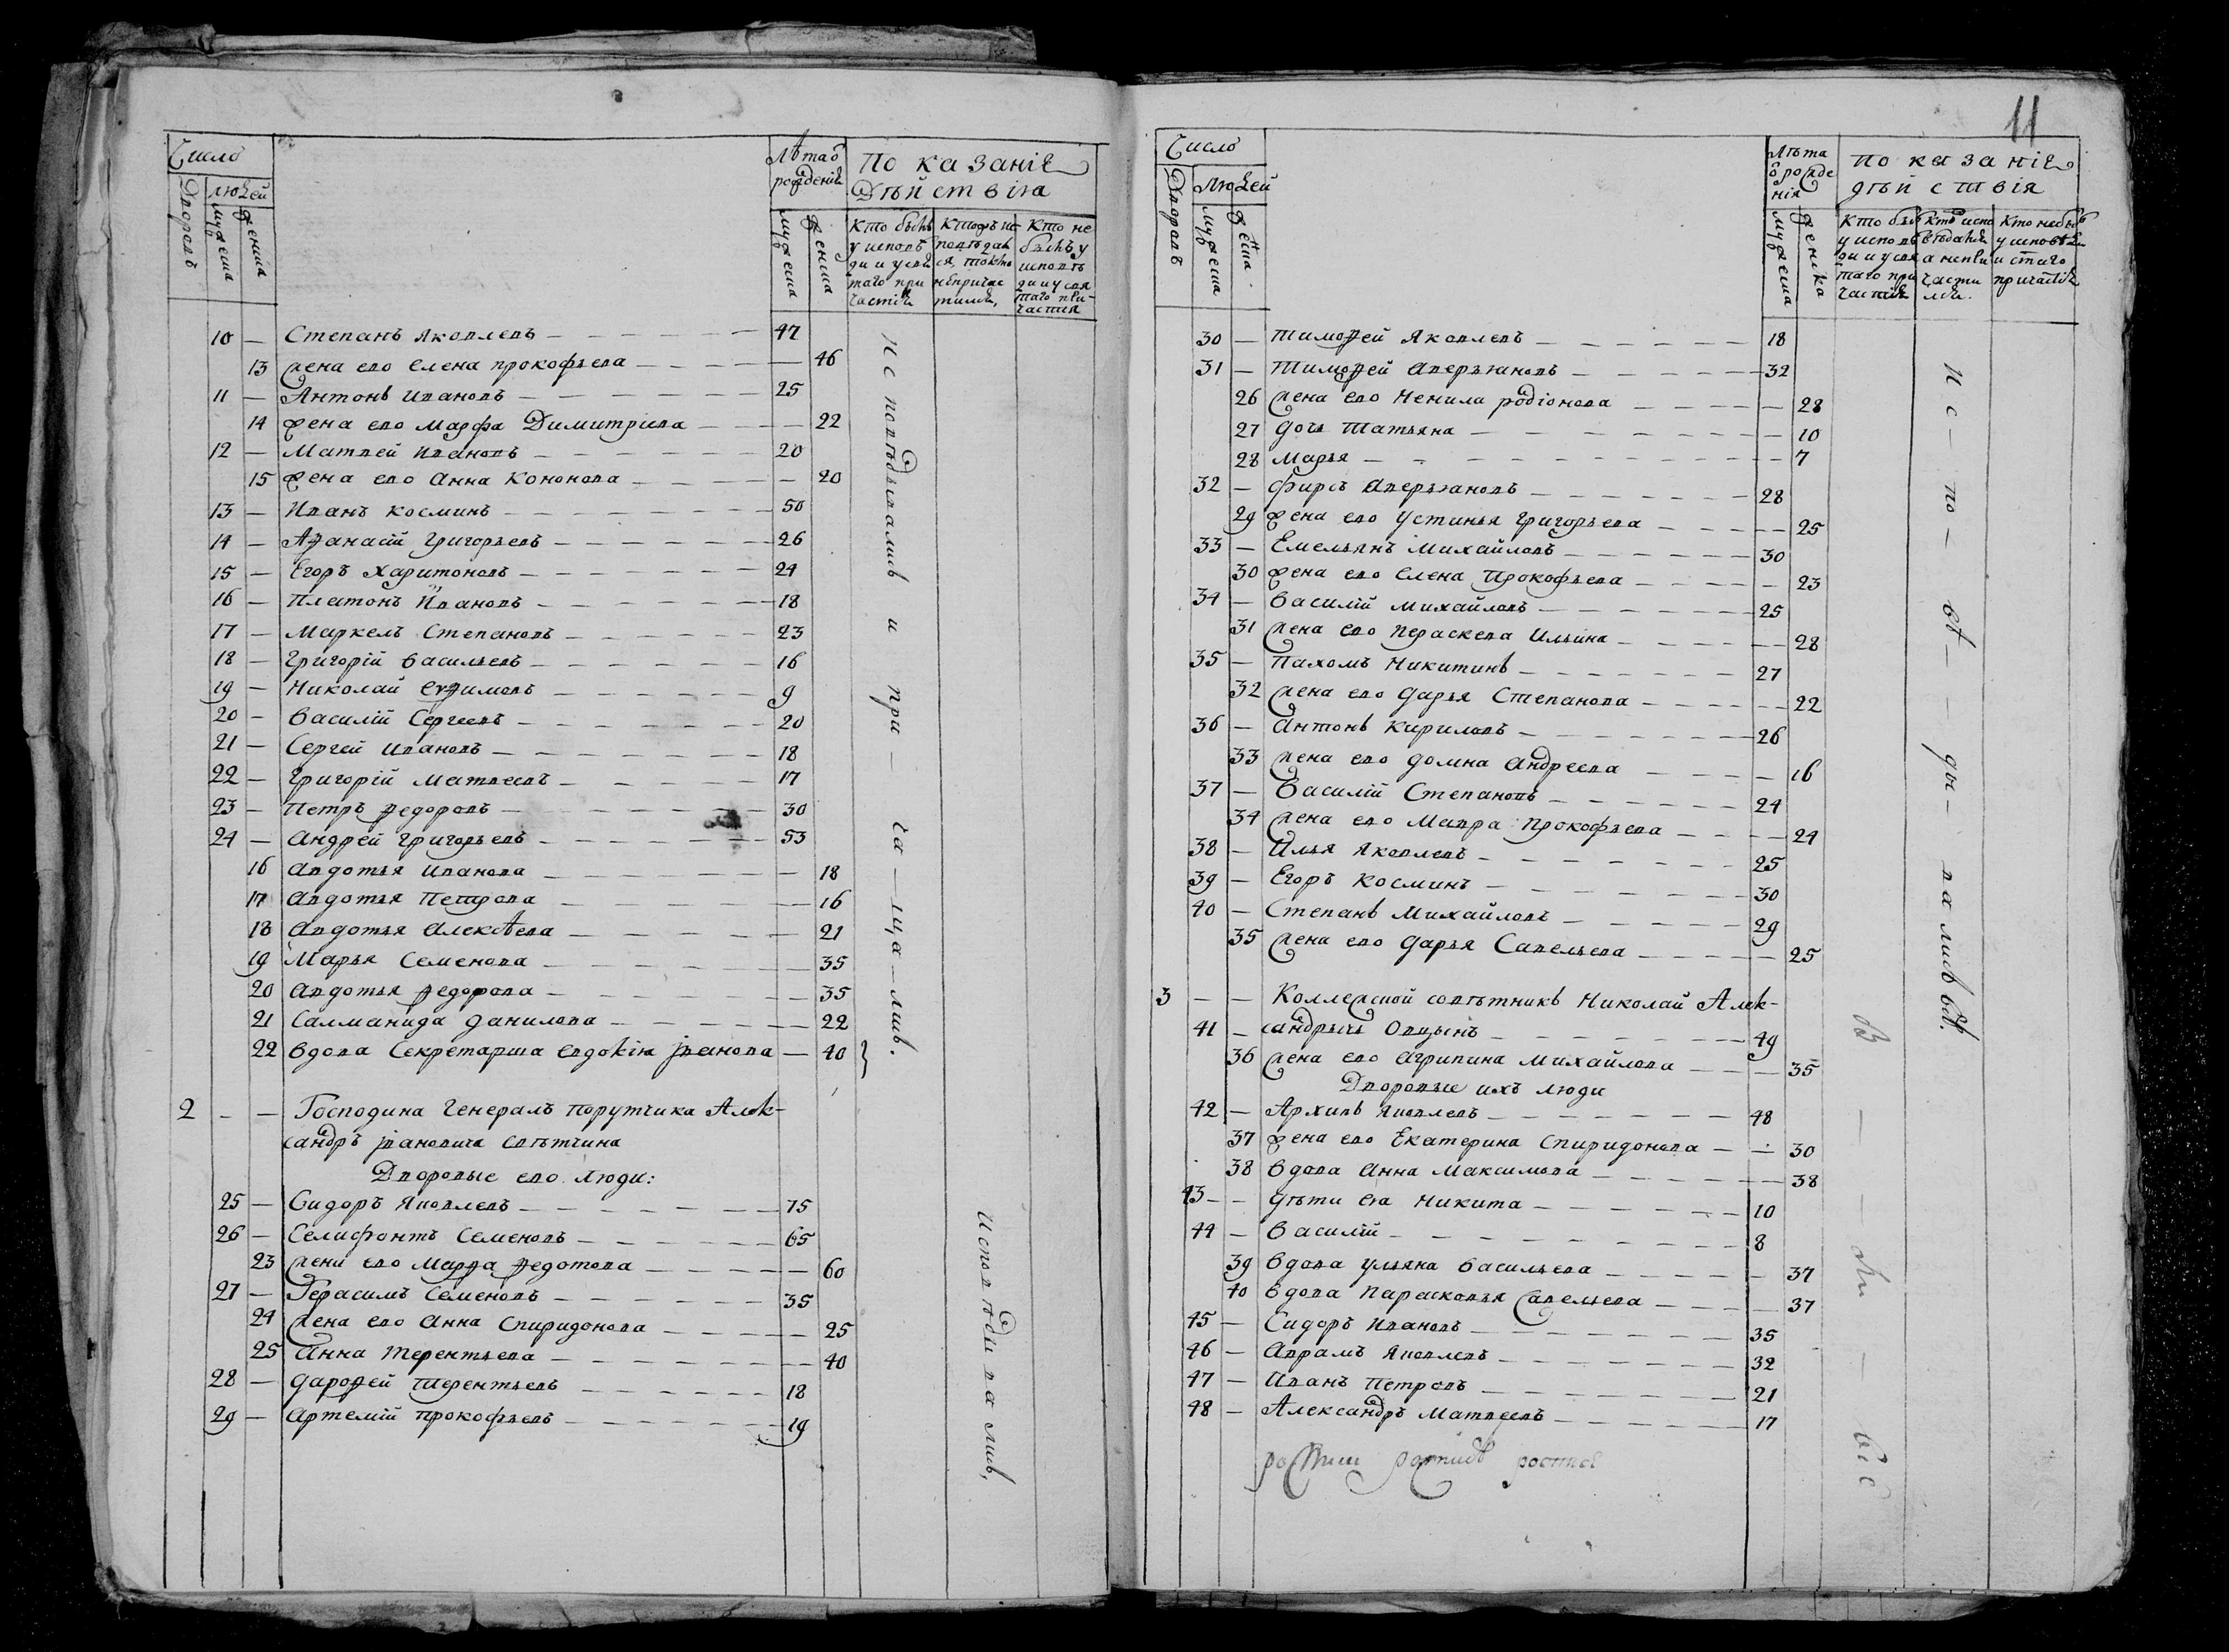 Число
Дворовъ
людей
мужеска
женска
Лѣта ѿ
рожденія
мужеска
женска
Показаніе
Дѣйствія
Кто былъ
у исповѣ
ди и у свя
таго при
частія
Кто не
былъ у
исповѣ
ди и у свя
таго при-
частія
10 — Степанъ Яковлевъ — 47
13 жена ево Елена прокофьева — 46
11 — Антонъ Ивановъ — 25
14 жена ево Марфа Димитриева — 22
12 — Матвей Ивановъ — 20
15 жена ево Анна Кононова — 20
13 — Иванъ Косминъ — 50
14 — Аѳанасіи Григорьевъ — 26
15 — Егоръ Харитоновъ — 24
16 — Платонъ Ивановъ — 18
17 — Маркелъ Степановъ — 23
18 — Григоріи Васильевъ — 16
19 — Николаи Еѳимовъ — 9
20 — Василіи Сергеевъ — 20
21 — Сергеи Ивановъ — 18
22 — Григоріи Матвеевъ — 17
23 — Петръ ѳедоровъ — 30
24 — Андреи Григорьевъ — 53
16 Авдотья Иванова — 18
17 Авдотья Петрова — 16
18 Авдотья Алексѣева — 21
19 Марья Семенова — 35
20 Авдотья ѳедорова — 35
21 Салманида Данилова — 22
22 Вдова Секретарша Евдокія Іванова — 40
исповѣдывались и при — ча — ща — лись.
2 — — Господина Генералъ Порутчика Алек-
сандръ Івановича Свѣтчина
Дворовые ево люди:
25 — Сидоръ Яковлевъ — 75
26 — Селифонтъ Семеновъ — 65
23 жена ево Марѳа ѳедотова — 60
27 — Герасимъ Семеновъ — 35
24 жена ево Анна Спиридонова — 25
25 Анна Терентьева — 40
28 — Дароѳей Терентьевъ — 18
29 — Артеміи прокофьевъ — 19
Исповѣдывались,
11
Число
Дворовъ
людей
мужеска
женска
Лѣта
ѿ рожде
нія
мужеска
женска
Показаніе
дѣйствія
Кто былъ
у исповѣ
ди и у свя
таго при
частія
Кто испо
вѣдался
а не при
части
лся.
Кто не былъ
у исповѣди
и стаго
причастія
30 — Тимоѳей Яковлевъ — 18
31 — Тимоѳей Аверьяновъ — 32
26 жена ево Ненила родіонова — 28
27 дочь Татьяна — 10
28 Марья — 7
32 — Фирсъ Аверьяновъ — 28
29 жена ево Устинья Григорьева — 25
33 — Емельянъ Михайловъ — 30
30 жена ево Елена Прокофьева — 23
34 — Василіи Михайловъ — 25
31 жена ево Параскева Ильина — 28
35 — Пахомъ Никитинъ — 27
32 жена ево Дарья Степанова — 22
36 — Антонъ Кириловъ — 26
33 жена ево Домна Андреева — 16
37 — Василіи Степановъ — 24
34 жена ево Мавра Прокофьева — 24
38 — Илья Яковлевъ — 25
39 — Егоръ Косминъ — 30
40 — Степанъ Михайловъ — 29
35 жена ево Дарья Савельева — 25
ис — по — вѣ — ды — вались
3 — — Коллежской совѣтникъ Николай Алек-
41 — сандрычь Овцынъ — 49
36 жена ево Агрипина Михайлова — 35
Дворовые ихъ люди
42 — Архипъ Яковлевъ — 48
37 жена ево Екатерина Спиридонова — 30
38 Вдова Анна Максимова — 38
43 — дѣти ея Никита — 10
44 — Василіи — 8
39 Вдова Ульяна Васильева — 37
40 Вдова Парасковья Савельева — 37
45 — Сидоръ Ивановъ — 35
46 — Аврамъ Яковлевъ — 32
47 — Иванъ Петровъ — 21
48 — Александръ Матвеевъ — 17